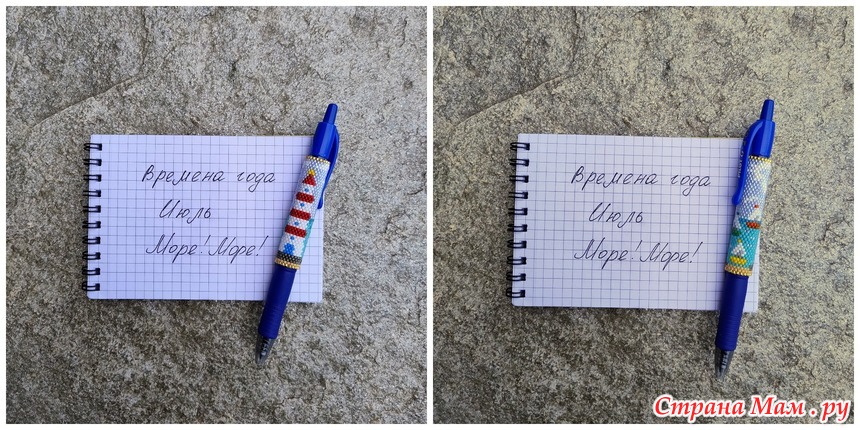 Времена года
Июль
Море! Море!
Времена года
Июль
Море! Море!
Страна Мам.ру